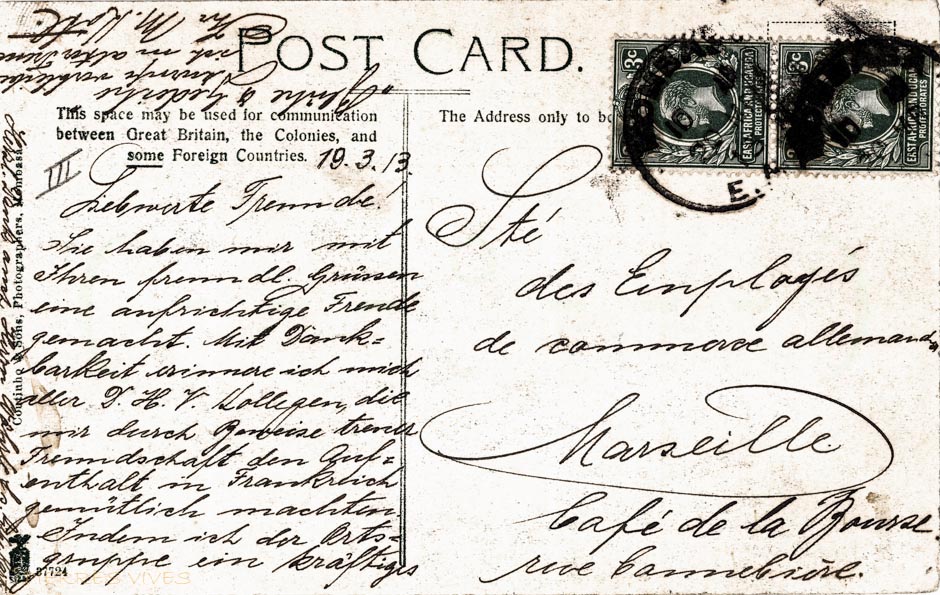 POST CARD.
This space may be used for communication
between Great Britain, the Colonies, and
some Foreign Countries.
The Address only to be
19.3.13.
III
Liebwerte Freunde!
Sie haben mir mit
Ihren freundl. Grüssen
eine aufrichtige Freude
gemacht. Mit Dank=
barkeit erinnere ich mich
aller D. H. V. Kollegen, die
mir durch Beweise treuer
Freundschaft den Auf=
enthalt in Frankreich
gemütlich machten
Indem ich der Orts=
gruppe ein kräftiges
"Blühe & Gedeihe"
ich in alter Treue
Ihr M.
Coutinho & Sons, Photographers, Mombasa.
37724
Sté
des Employés
de commerce allemands
Marseille
Café de la Bourse
rue Cannebière.
3c
EAST AFRICA AND UGANDA
PROTECTORATES
3c
EAST AFRICA AND UGANDA
PROTECTORATES